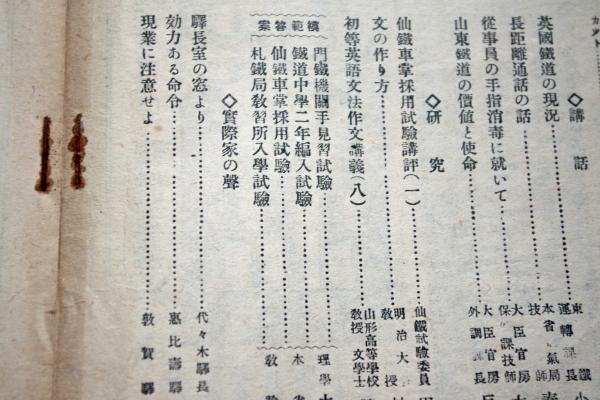 カット
◇講話
英國鐵道の現況
東鐵
運轉課長 小
長距離通話の話
本省電氣局
技師
從事員の手指消毒に就いて
大臣官房
保 課技師
山東鐵道の價値と使命
大臣官房
外 課長
◇研究
仙鐵車掌採用試驗講評（一）
仙鐵試驗委員
文の作り方
明治大
教授
初等英語文法作文講義（八）
山形高等學校
教授 文學士
模範答案
門鐵機關手見習試驗
理學
鐵道中學二年編入試驗
仙鐵車掌採用試驗
札鐵局教習所入學試驗
◇實際家の聲
驛長室の窓より
代々木驛長
効力ある命令
惠比壽驛
現業に注意せよ
敦賀驛